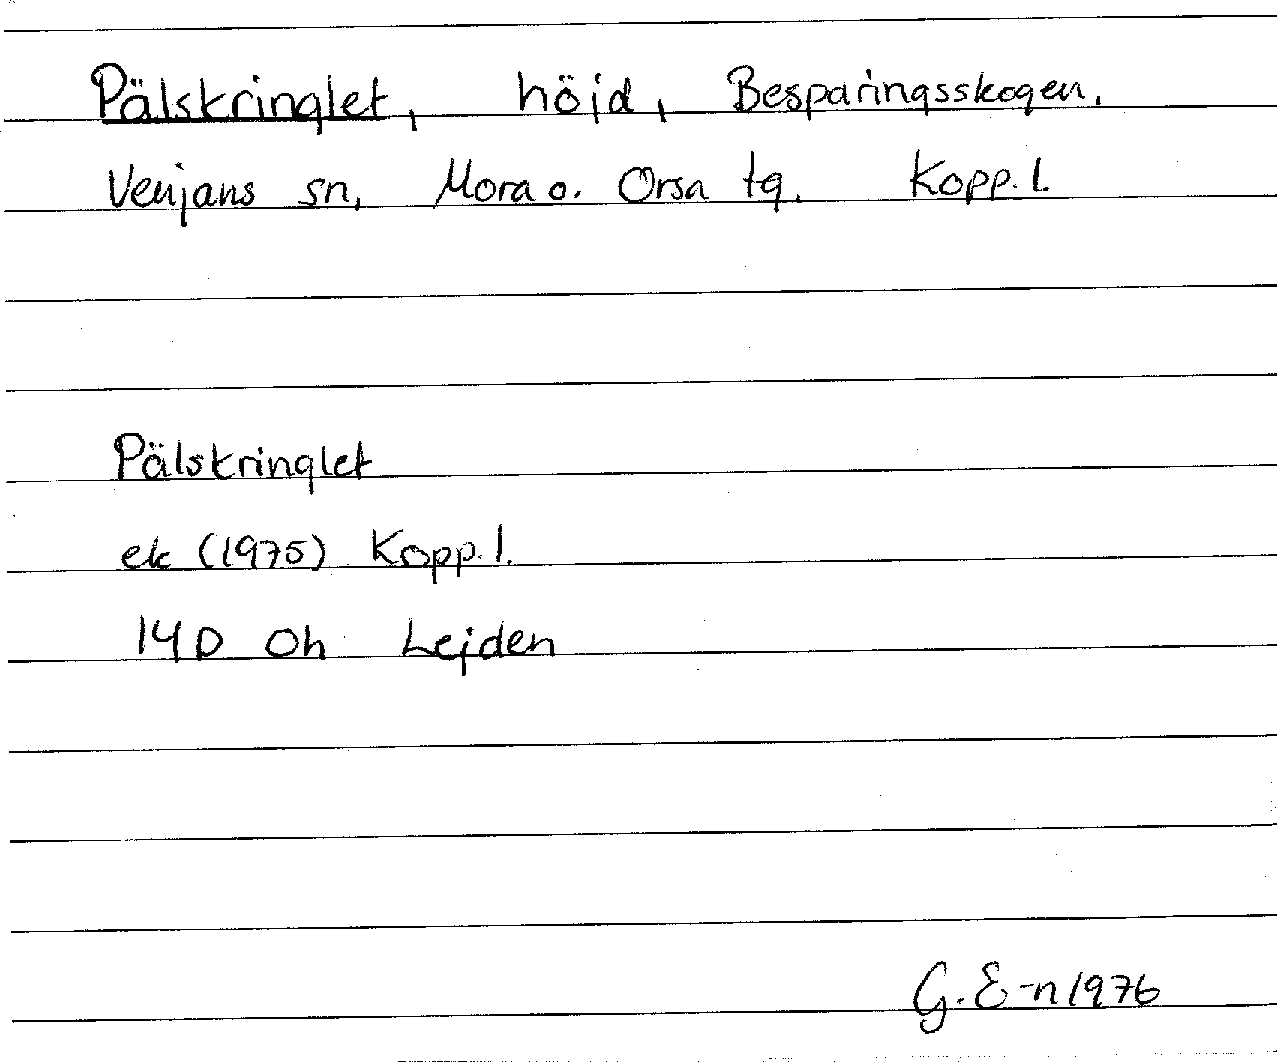 Pälskringlet, höjd, Besparingsskogen,
Venjans sn, Mora o. Orsa tg. Kopp. l.
Pälskringlet
ek (1975) Kopp. l.
14D 0h Lejden
G. E-n 1976